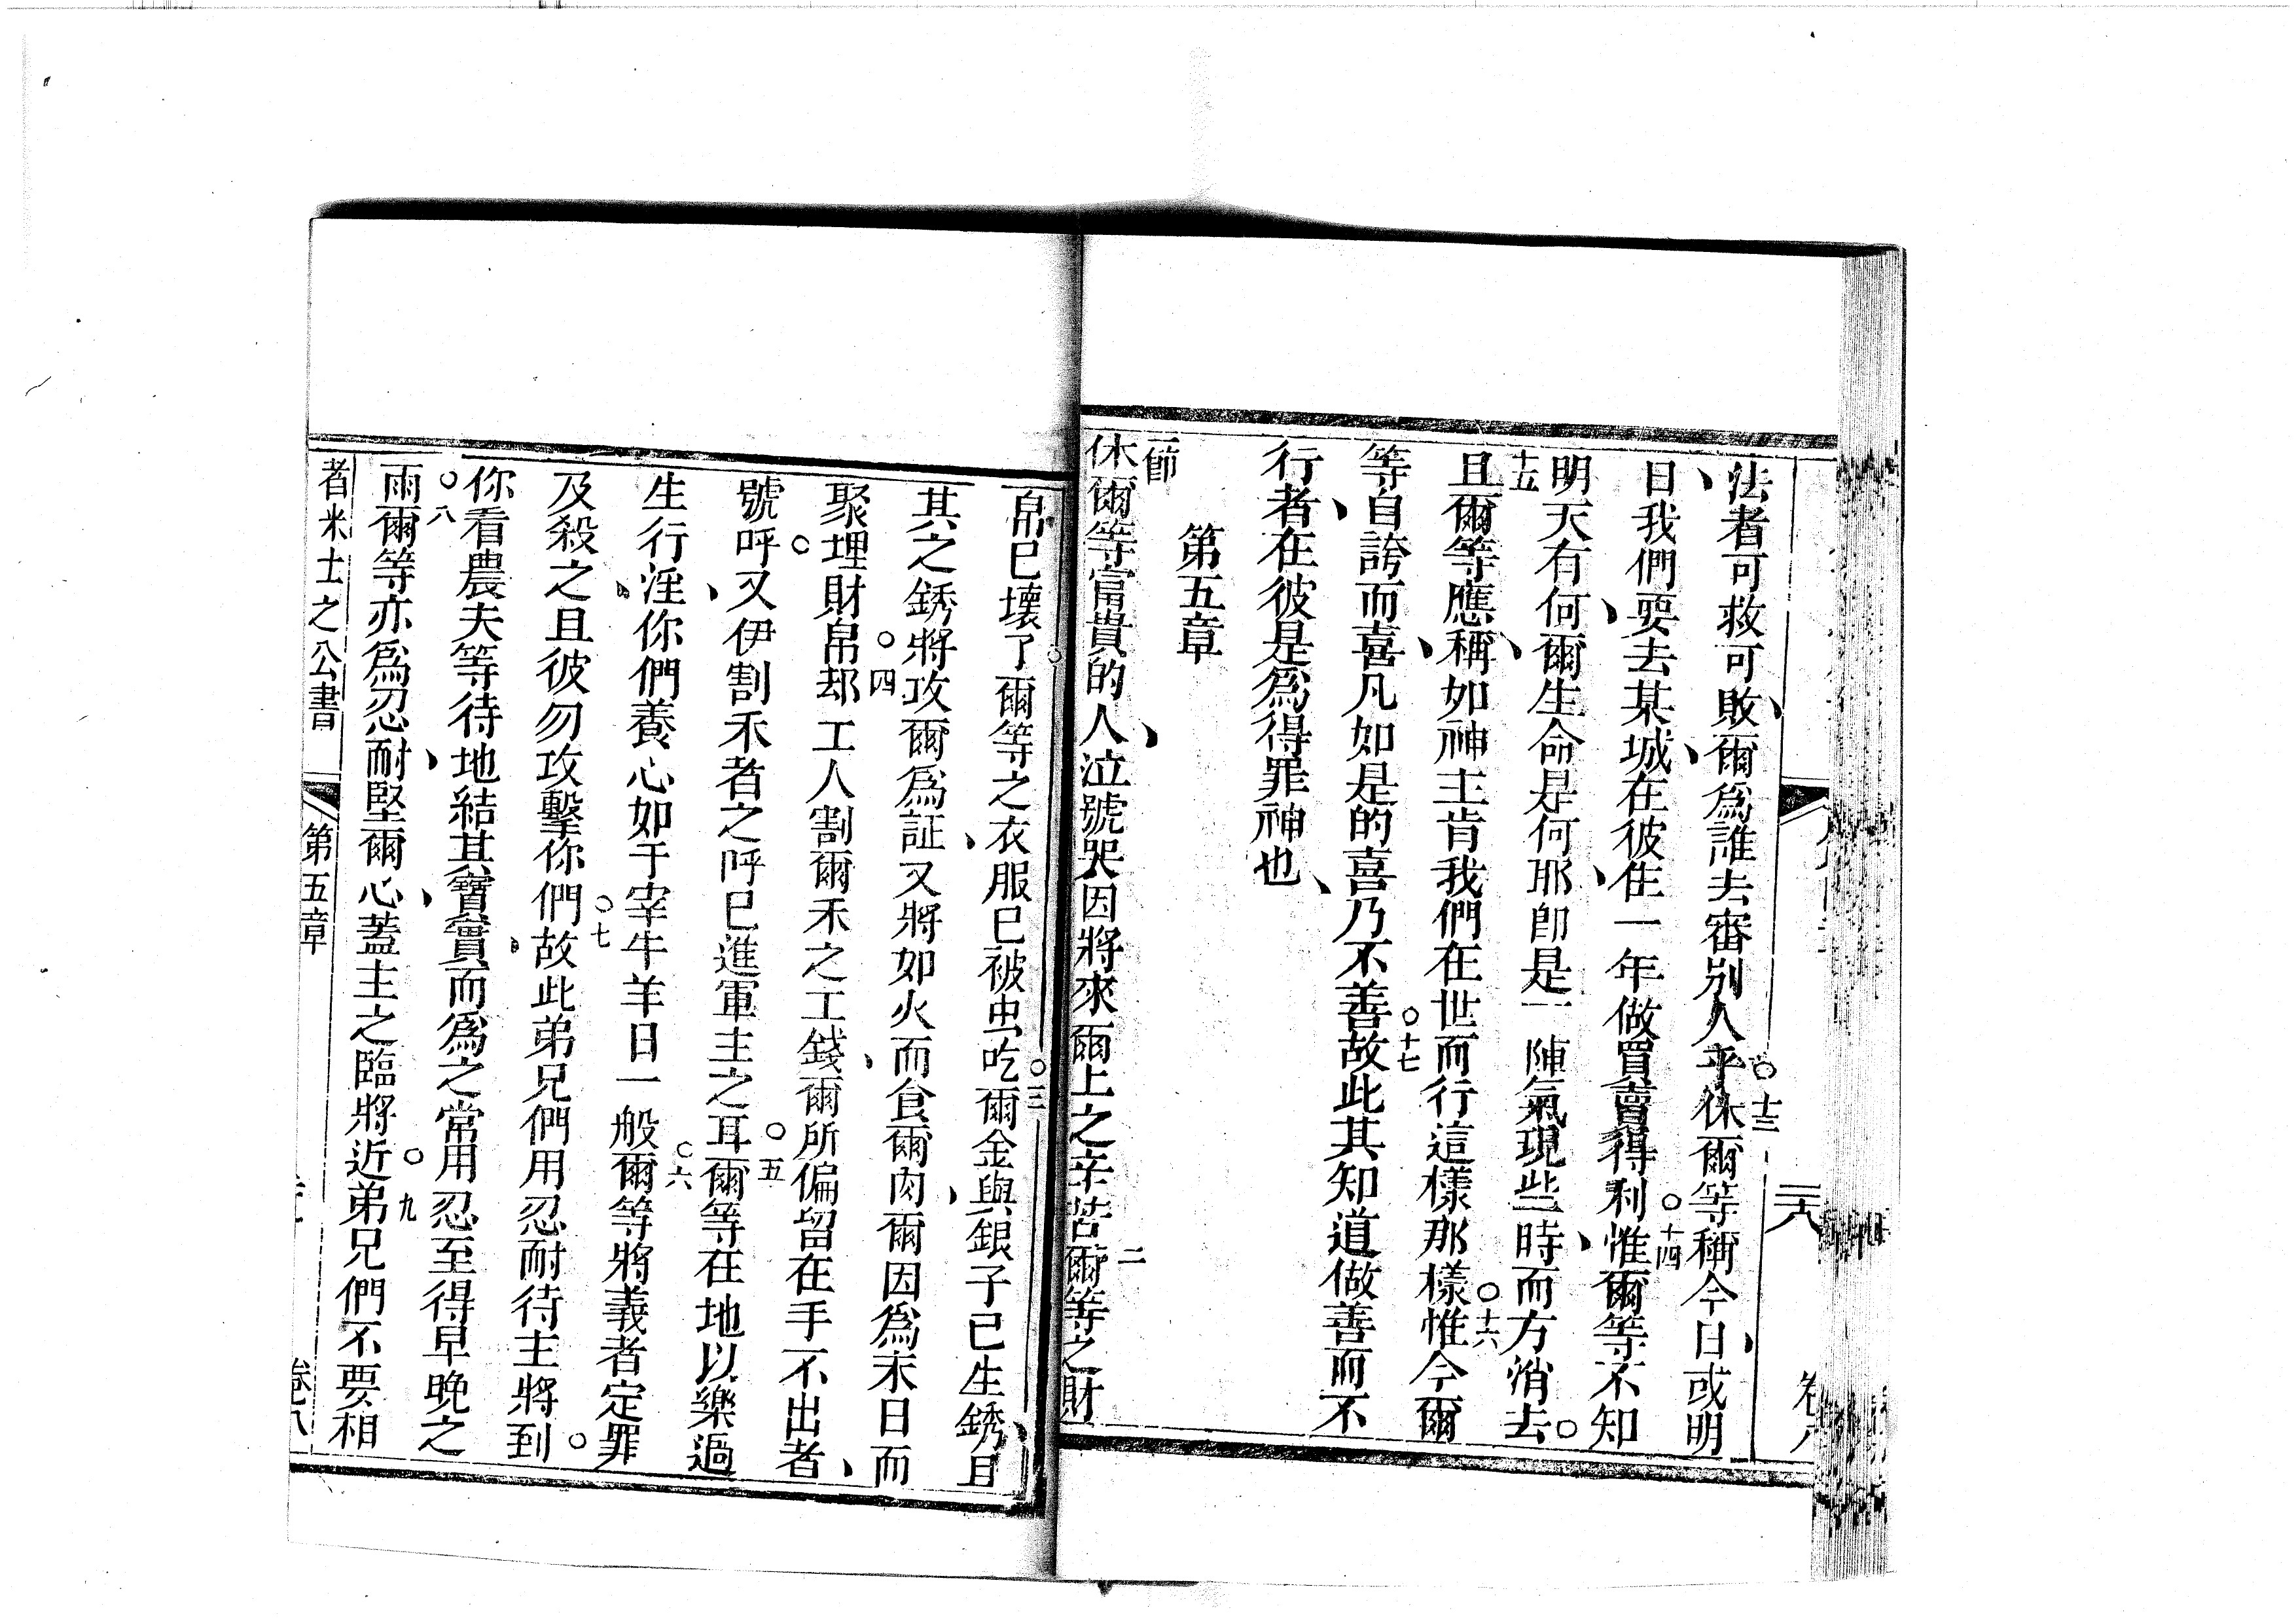 法者可救可敗爾為誰去審别人乎休爾等稱今日或明
十三
日我們要去某城在彼住一年做買賣得利惟爾等不知
十四
明天有何爾生命是何耶即是一陣氣現些時而方消去
十五
且爾等應稱如神主肯我們在世而行這樣那樣惟今爾
十六
等自誇而喜凡如是的喜乃不善故此其知道做善而不
十七
行者在彼是為得罪神也
第五章
一節
休爾等富貴的人泣號哭因將來爾上之辛苦爾等之財
二
帛已壞了爾等之衣服已被虫吃爾金與銀子已生銹且
三
其之銹將攻爾為証又將如火而食爾肉爾因為末日而
聚埋財帛却工人割爾禾之工錢爾所偏留在手不出者
四
號呼又伊割禾者之呼已進軍主之耳爾等在地以樂過
五
生行淫你們養心如于宰牛羊日一般爾等將義者定罪
六
及殺之且彼勿攻擊你們故此弟兄們用忍耐待主將到
七
你看農夫等待地結其寶實而為之常用忍至得早晚之
雨爾等亦為忍耐堅爾心蓋主之臨將近弟兄們不要相
八
九
者米士之公書
第五章
卷八